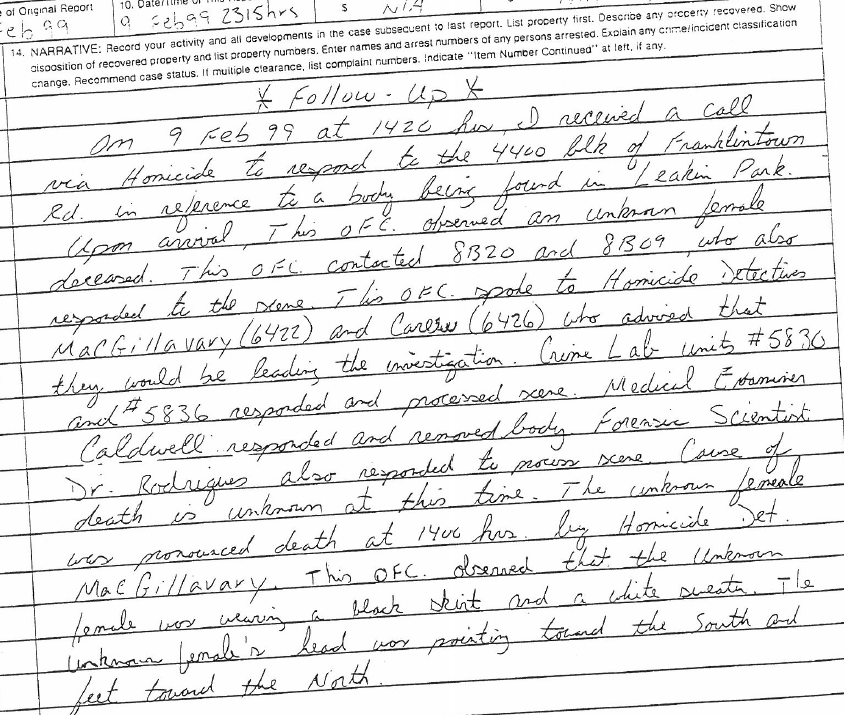 e of Original Report
10. Date/Time of
Feb 99
9 Feb 99 2315hrs
$ N/A
14. NARRATIVE: Record your activity and all developments in the case subsequent to last report. List property first. Describe any property recovered. Show
disposition of recovered property and list property numbers. Enter names and arrest numbers of any persons arrested. Explain any crime/incident classification
change. Recommend case status. If multiple clearance, list complaint numbers. Indicate "Item Number Continued" at left, if any.
* Follow-Up *
On 9 Feb 99 at 1420 hrs, I received a call
via Homicide to respond to the 4400 blk of Franklintown
Rd. in reference to a body being found in Leakin Park.
Upon arrival, This OFC. observed an unknown female
deceased. This OFC. contacted 8B20 and 8B09, who also
responded to the scene. This OFC. spoke to Homicide Detectives
MacGillavary (6422) and Carew (6426) who advised that
they would be leading the investigation. Crime Lab units #5830
and #5836 responded and processed scene. Medical Examiner
Caldwell responded and removed body. Forensic Scientist
Dr. Rodrigues also responded to process scene. Cause of
death is unknown at this time. The unknown female
was pronounced death at 1400 hrs. by Homicide Det.
MacGillavary. This OFC. observed that the Unknown
female was wearing a black skirt and a white sweater. The
unknown female's head was pointing toward the South and
feet toward the North.